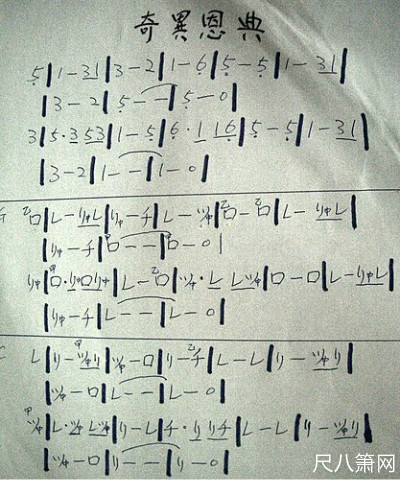 奇異恩典
5|1-31|3-2|1-6|5-5|1-31|
|3-2|5--|5-0|
3|5·353|1-5|6·116|5-5|1-31|
|3-2|1--|1-0|
ロ|レ-リ中レ|リ中-チ|レ-ツ中|ロ-ロ|レ-リ中レ|
|リ中-チ|ロ--|ロ-0|
リ中|ロ·リ中ロリ中|レ-ロ|ツ中·レレツ中|ロ-ロ|レ-リ中レ|
|リ中-チ|レ--|レ-0|
レ|リ-ツ中リ|ツ中-ロ|リ-チ|レ-レ|リ-ツ中リ|
|ツ中-ロ|レ--|レ-0|
ツ中|レ·ツ中レツ中|リ-レ|チ·リリチ|レ-レ|リ-ツ中リ|
|ツ中-ロ|リ--|リ-0|
尺八箫网